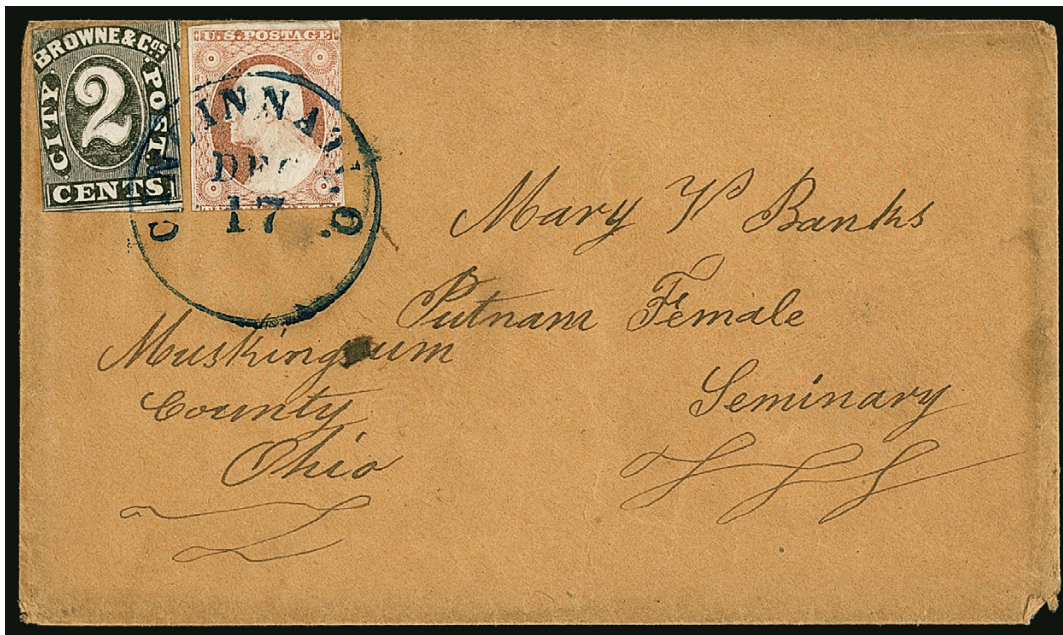 BROWNE & COS
CITY POST.
2
CENTS
U.S. POSTAGE
CINCINNATI O.
DEC
17
Mary P Banks
Putnam Female
Seminary
Muskingum
County
Ohio